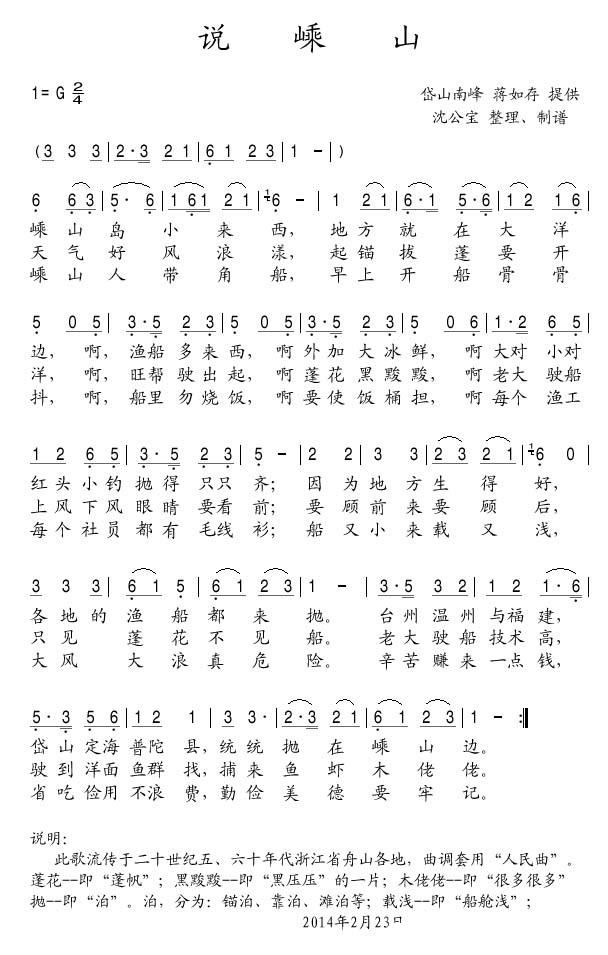 说 嵊 山
1= G 2/4
岱山南峰 蒋如存 提供
沈公宝 整理、制谱
(3 3 3 | 2·3 2 1 | 6 1 2 3 | 1 - | )
6 6 3 | 5· 6 | 1 6 1 2 1 | 1 6 - | 1 2 1 | 6·1 5·6 | 1 2 1 6 |
嵊 山 岛 小 来 西, 地 方 就 在 大 洋
天 气 好 风 浪 漾, 起 锚 拔 蓬 要 开
嵊 山 人 带 角 船, 早 上 开 船 骨 骨
5 0 5 | 3·5 2 3 | 5 0 5 | 3·5 2 3 | 5 0 6 | 1·2 6 5 |
边, 啊, 渔船 多 来 西, 啊 外 加 大 冰 鲜, 啊 大对 小对
洋, 啊, 旺帮 驶 出 起, 啊 蓬 花 黑 黢黢, 啊 老大 驶船
抖, 啊, 船里 勿 烧 饭, 啊 要 使 饭 桶 担, 啊 每个 渔工
1 2 6 5 | 3·5 2 3 | 5 - | 2 2 3 3 | 2 3 2 1 | 1 6 0 |
红 头 小 钓 抛 得 只只 齐; 因 为 地 方 生 得 好,
上 风 下 风 眼 睛 要看 前; 要 顾 前 来 要 顾 后,
每 个 社 员 都 有 毛线 衫; 船 又 小 来 载 又 浅,
3 3 3 | 6 1 5 | 6 1 2 3 | 1 - | 3·5 3 2 | 1 2 1·6 |
各 地 的 渔 船 都 来 抛。 台 州 温 州 与 福 建,
只 见 蓬 花 不 见 船。 老 大 驶 船 技术 高,
大 风 大 浪 真 危 险。 辛 苦 赚 来 一点 钱,
5·3 5 6 | 1 2 1 | 3 3· | 2·3 2 1 | 6 1 2 3 | 1 - :‖
岱 山 定海 普陀 县, 统 统 抛 在 嵊 山 边。
驶 到 洋面 鱼群 找, 捕 来 鱼 虾 木 佬 佬。
省 吃 俭用 不浪 费, 勤 俭 美 德 要 牢 记。
说明:
此歌流传于二十世纪五、六十年代浙江省舟山各地, 曲调套用“人民曲”。
蓬花--即“蓬帆”; 黑黢黢--即“黑压压”的一片; 木佬佬--即“很多很多”
抛--即“泊”。泊, 分为: 锚泊、靠泊、滩泊等; 载浅--即“船舱浅”;
2014年2月23日